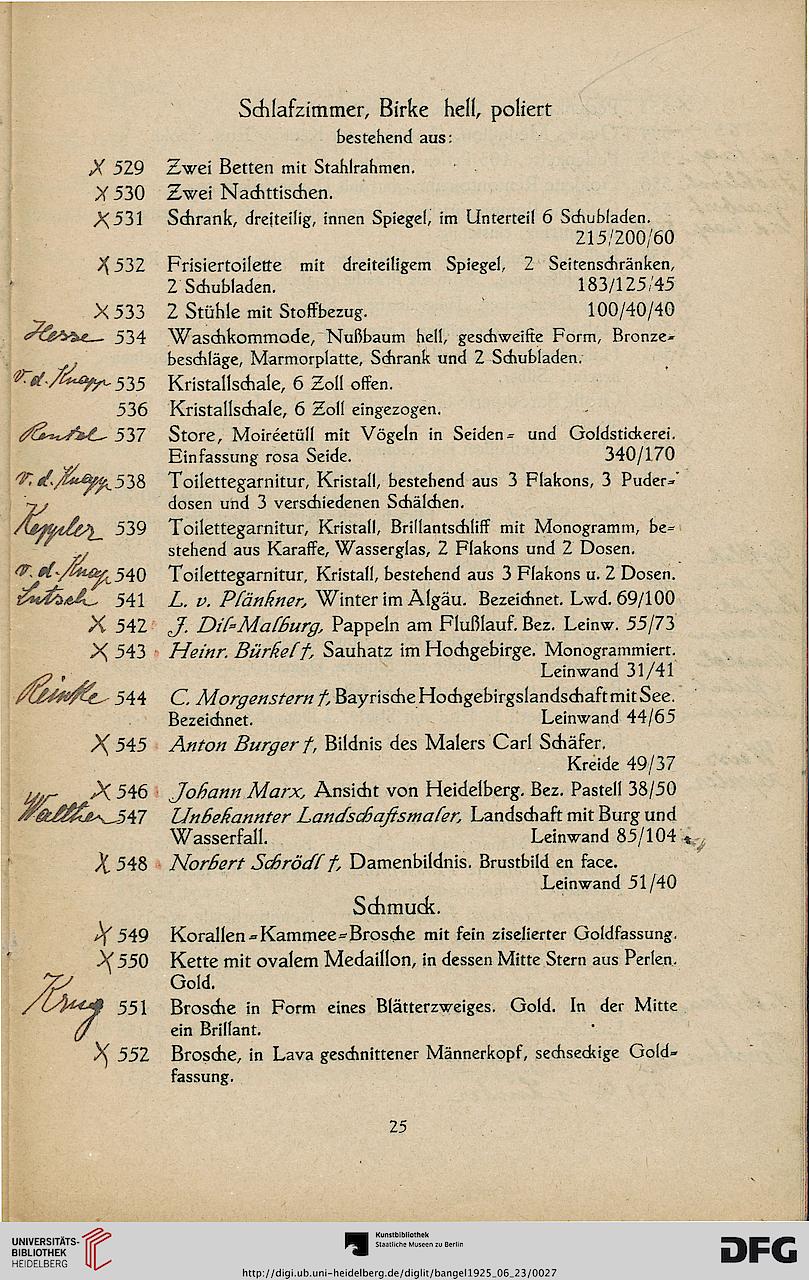 Schlafzimmer, Birke hell, poliert
bestehend aus:
X 529 Zwei Betten mit Stahlrahmen.
X 530 Zwei Nachttischen.
X 531 Schrank, dreiteilig, innen Spiegel, im Unterteil 6 Schubladen.
215/200/60
X 532 Frisiertoilette mit dreiteiligem Spiegel, 2 Seitenschränken,
2 Schubladen. 183/125/45
X 533 2 Stühle mit Stoffbezug. 100/40/40
Hesse 534 Waschkommode, Nußbaum hell, geschweifte Form, Bronze-
beschläge, Marmorplatte, Schrank und 2 Schubladen.
v. d. Knapp 535 Kristallschale, 6 Zoll offen.
536 Kristallschale, 6 Zoll eingezogen.
537 Store, Moiréetüll mit Vögeln in Seiden- und Goldstickerei.
Einfassung rosa Seide. 340/170
v. d. Knapp 538 Toilettegarnitur, Kristall, bestehend aus 3 Flakons, 3 Puder-
dosen und 3 verschiedenen Schälchen.
Keppler 539 Toilettegarnitur, Kristall, Brillantschliff mit Monogramm, be-
stehend aus Karaffe, Wasserglas, 2 Flakons und 2 Dosen.
v. d. Knap 540 Toilettegarnitur, Kristall, bestehend aus 3 Flakons u. 2 Dosen.
541 L. v. Plänkner, Winter im Algäu. Bezeichnet. Lwd. 69/100
X 542 J. Dil-Malburg, Pappeln am Flußlauf. Bez. Leinw. 55/73
X 543 Heinr. Bürkel †, Sauhatz im Hochgebirge. Monogrammiert.
Leinwand 31/41
Reinke 544 C. Morgenstern †, Bayrische Hochgebirgslandschaft mit See.
Bezeichnet. Leinwand 44/65
X 545 Anton Burger †, Bildnis des Malers Carl Schäfer.
Kreide 49/37
X 546 Johann Marx, Ansicht von Heidelberg. Bez. Pastell 38/50
Walther 547 Unbekannter Landschaftsmaler, Landschaft mit Burg und
Wasserfall. Leinwand 85/104
X 548 Norbert Schrödl †, Damenbildnis. Brustbild en face.
Leinwand 51/40
Schmuck.
X 549 Korallen-Kammee-Brosche mit fein ziselierter Goldfassung.
X 550 Kette mit ovalem Medaillon, in dessen Mitte Stern aus Perlen.
Gold.
Krug 551 Brosche in Form eines Blätterzweiges. Gold. In der Mitte
ein Brillant.
X 552 Brosche, in Lava geschnittener Männerkopf, sechseckige Gold-
fassung.
25
UNIVERSITÄTS-
BIBLIOTHEK
HEIDELBERG
Kunstbibliothek
Staatliche Museen zu Berlin
DFG
http://digi.ub.uni-heidelberg.de/diglit/bangel1925_06_23/0027